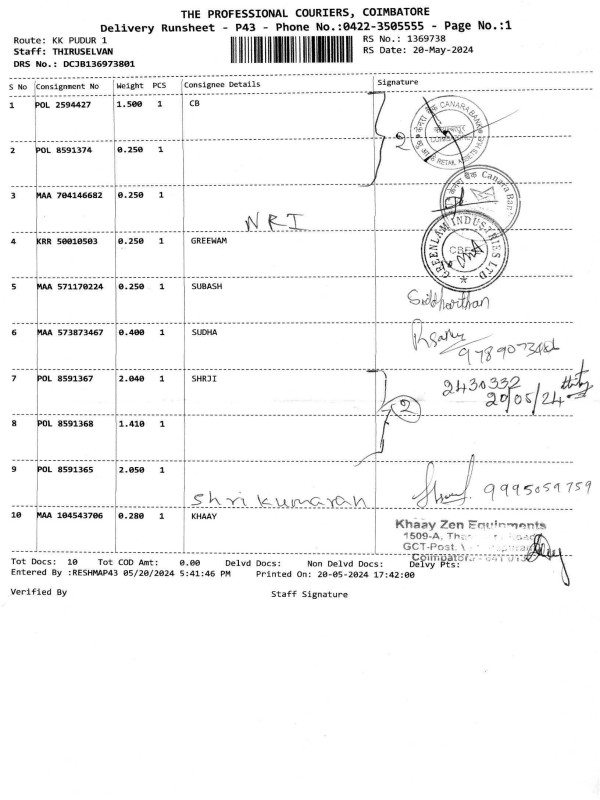 THE PROFESSIONAL COURIERS, COIMBATORE
Delivery Runsheet - P43 - Phone No.:0422-3505555 - Page No.:1
Route: KK PUDUR 1 RS No.: 1369738
Staff: THIRUSELVAN RS Date: 20-May-2024
DRS No.: DCJB136973801
S No Consignment No Weight PCS Consignee Details Signature
1 POL 2594427 1.500 1 CB
CANARA BANK
RETAIL ASSETS HUB
2
2 POL 8591374 0.250 1
3 MAA 704146682 0.250 1
केनरा बैंक Canara Bank
NRI
4 KRR 50010503 0.250 1 GREEWAM
GREENLAM INDUSTRIES LTD
5 MAA 571170224 0.250 1 SUBASH
Siddharthan
6 MAA 573873467 0.400 1 SUDHA
7 POL 8591367 2.040 1 SHRJI
2430332
20/05/24
2
8 POL 8591368 1.410 1
9 POL 8591365 2.050 1
Shri kumaran 9995059759
10 MAA 104543706 0.280 1 KHAAY
Khaay Zen Equipments
1509-A,
GCT-Post,
Coimbatore
Tot Docs: 10 Tot COD Amt: 0.00 Delvd Docs: Non Delvd Docs: Delvy Pts:
Entered By :RESHMAP43 05/20/2024 5:41:46 PM Printed On: 20-05-2024 17:42:00
Verified By Staff Signature